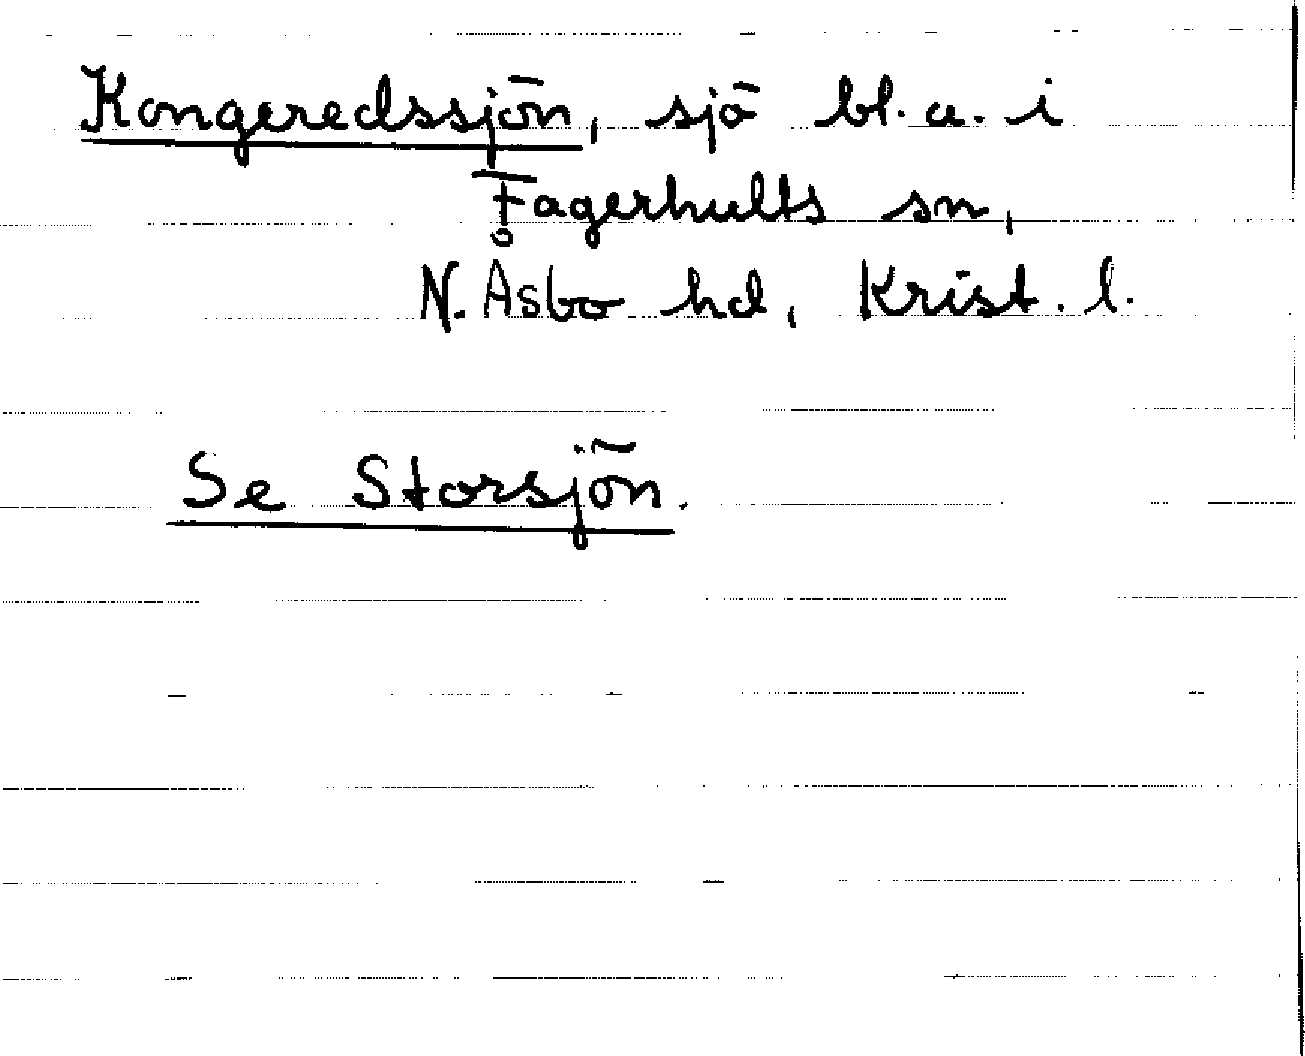 Kongeredssjön, sjö bl.a. i
Fagerhults sn,
N. Åsbo hd, Krist. l.
Se Storsjön.